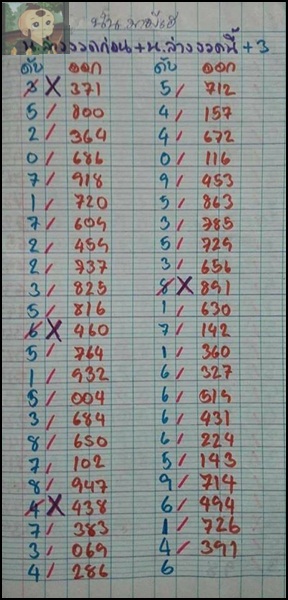 น.ล่างงวดก่อน+น.ล่างงวดนี้+3
ดับ ออก ดับ ออก
8 X 371 5 / 712
5 / 800 4 / 157
2 / 364 4 / 672
0 / 686 0 / 116
7 / 918 9 / 453
1 / 720 5 / 863
7 / 609 3 / 785
2 / 459 5 / 729
2 / 737 3 / 656
3 / 825 8 X 891
5 / 816 1 / 630
6 X 460 7 / 142
5 / 764 1 / 360
1 / 932 6 / 327
5 / 004 6 / 519
3 / 684 6 / 431
8 / 650 6 / 224
7 / 102 5 / 143
8 / 947 9 / 714
4 X 438 6 / 494
7 / 383 1 / 726
3 / 069 4 / 391
4 / 286 6